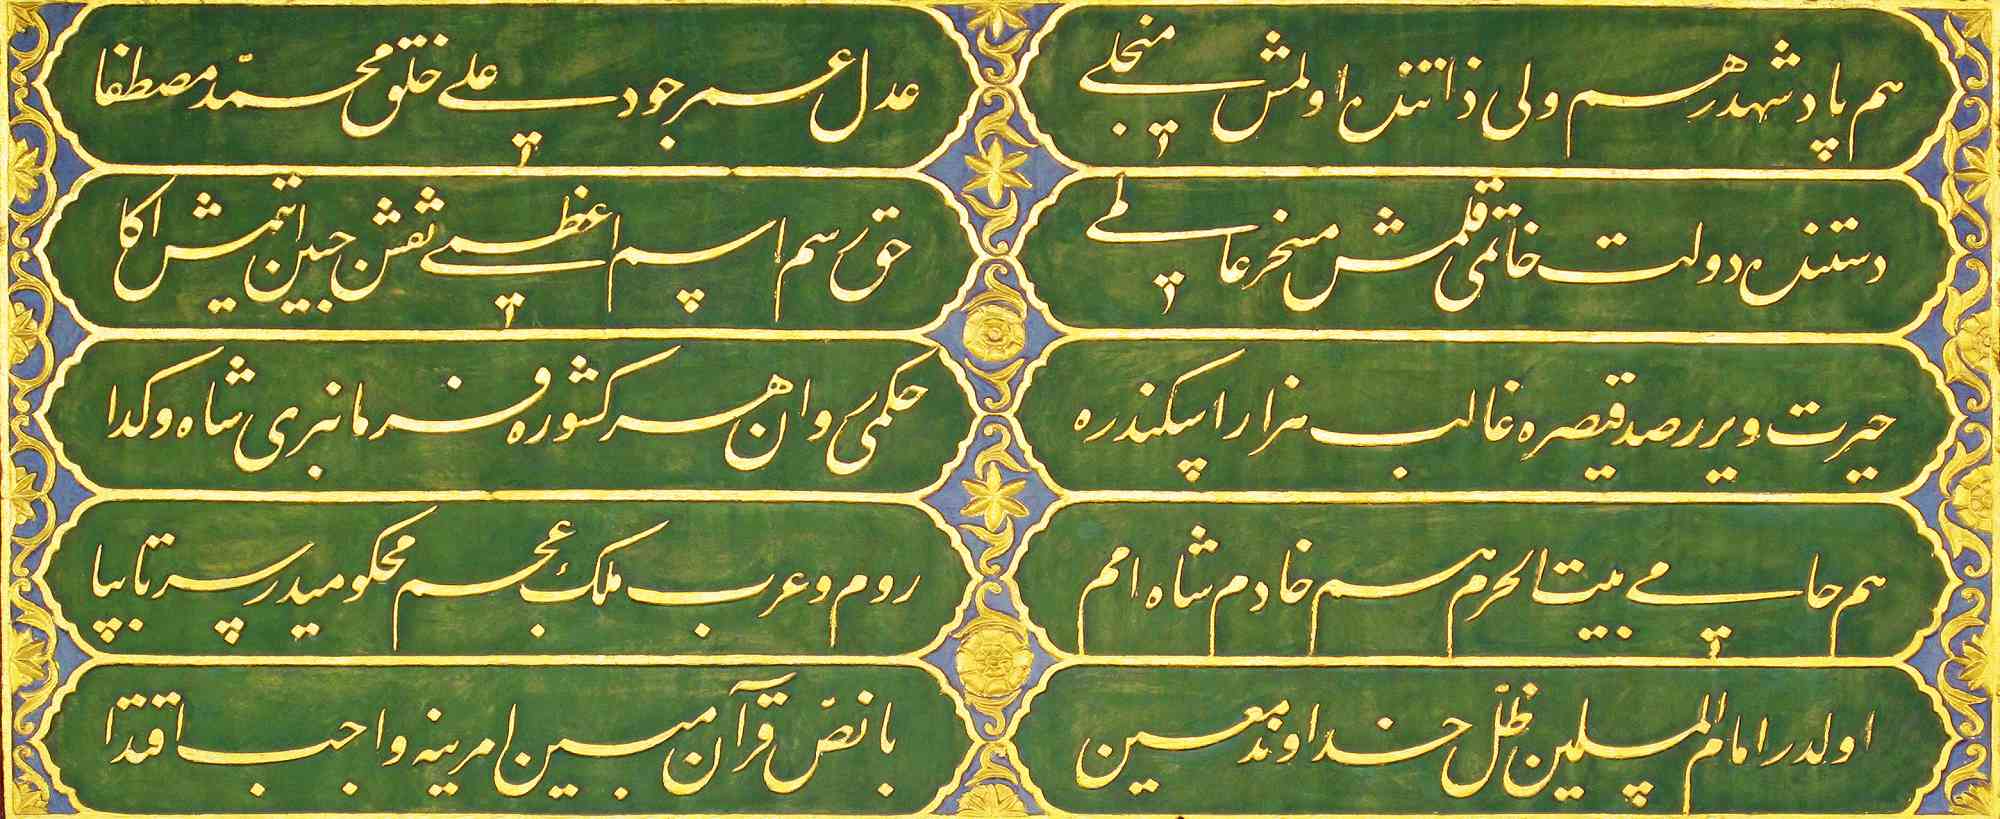 هم پادشهدر هم ولی ذاتنده اولمش منجلی
عدل عمر جود علی خلق محمّد مصطفا
دستنده دولت خاتمی قلمش مسخر عالمی
حق رسم اسم اعظمی نقش جبین اتمش اکا
حیرت ویرر صد قیصره غالب هزار اسکندره
حکمی روان هر کشوره فرمانبری شاه و کدا
هم حامی بیت الحرم هم خادم شاه امم
روم و عرب ملک عجم محکومیدر سر تا بپا
اولدر امام المسلمین ظلّ خداوند معین
با نصّ قرآن مبین امرینه واجب اقتدا